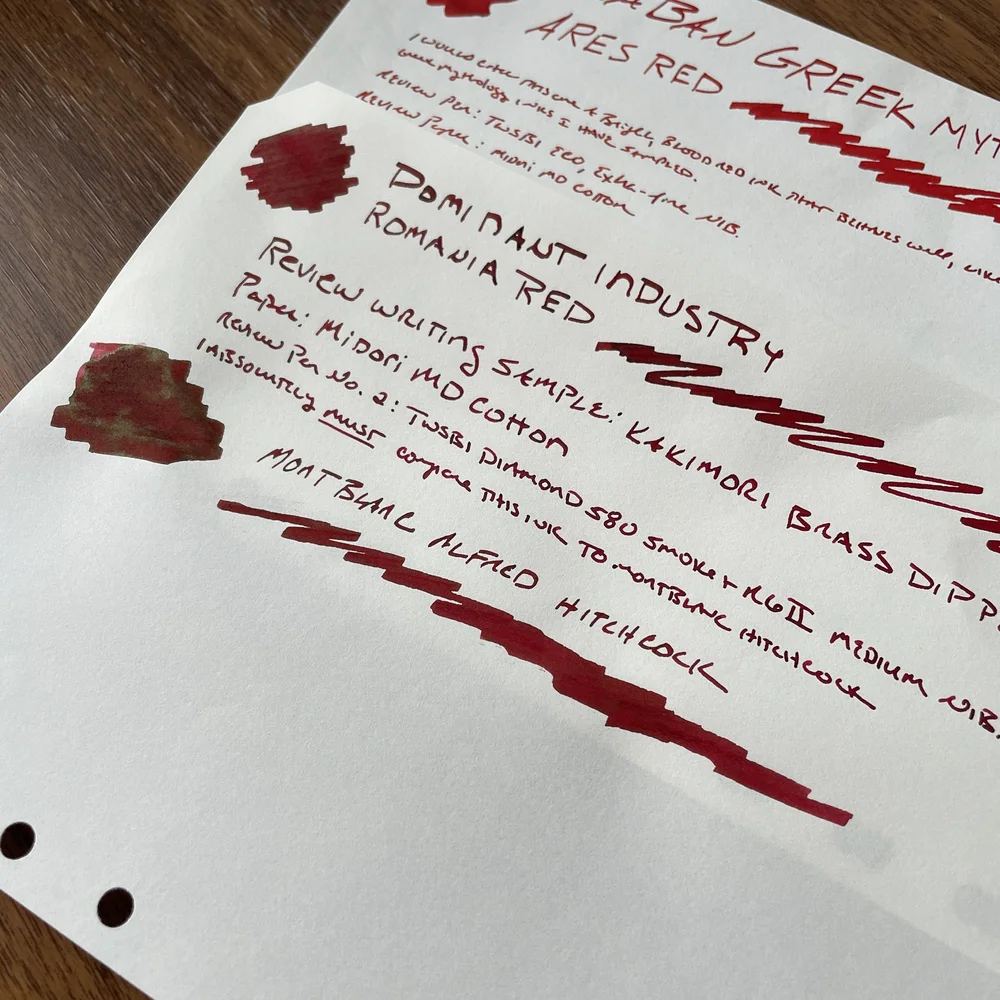 BAN GREEK MYT
ARES RED
I would call this one a Bright, Blood red ink that behaves well, like
Greek Mythology inks I have sampled.
Review Pen: TWSBI ECO, Extra-fine nib.
Review Paper: Midori MD Cotton
DOMINANT INDUSTRY
ROMANIA RED
Review writing sample: KAKIMORI BRASS DIPP
Paper: Midori MD Cotton
Review Pen No. 2: TWSBI DIAMOND 580 Smoke + RG II MEDIUM NIB.
I ABSOLUTELY MUST compare this ink to MONTBLANC HITCHCOCK
MONTBLANC ALFRED HITCHCOCK